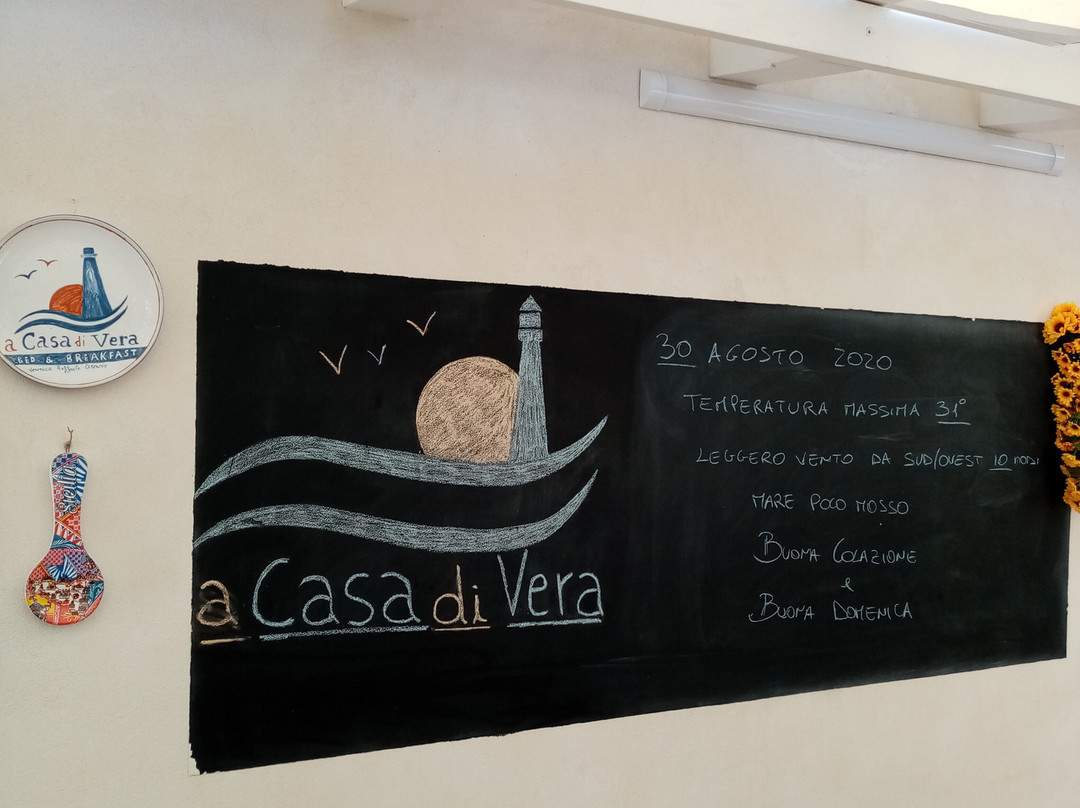 a Casa di Vera
BED & BREAKFAST
Sicilia
a Casa di Vera
30 AGOSTO 2020
TEMPERATURA MASSIMA 31°
LEGGERO VENTO DA SUD/OVEST 10 NODI
MARE POCO MOSSO
BUONA COLAZIONE
e
BUONA DOMENICA